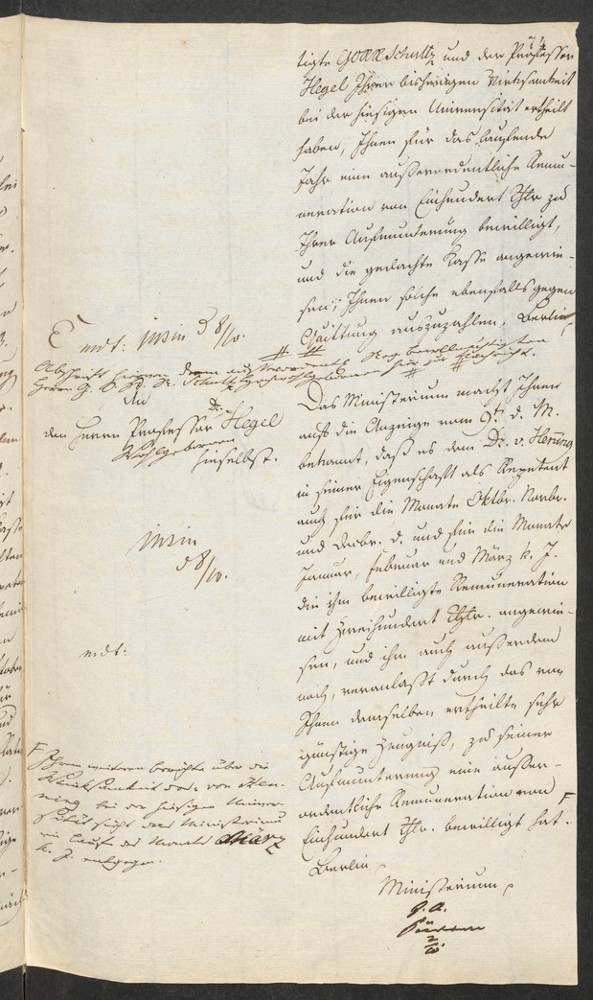 tigte GORR Schultz und der Professor
Hegel Ihrer bisherigen Wirksamkeit
bei der hiesigen Universität ertheilt
haben, Ihnen für das laufende
Jahr eine außerordentliche Remu-
neration von Einhundert Thlr zu
Ihrer Aufmunterung bewilligt,
und die gedachte Kasse angewie-
sen, Ihnen solche ebenfalls gegen
Quittung auszuzahlen. Berlin
mdt:
8/10.
Abschrift
An
den Herrn Professor Hegel
Wohlgeboren
hieselbst.
Das Ministerium macht Ihnen
auf die Anzeige vom 9t. d. M.
bekannt, daß es dem Dr. v. Henning
in seiner Eigenschaft als Repetent
auch für die Monate Oktbr. Novbr.
und Decbr. d. und für die Monate
Januar, Februar und März k. J.
die ihm bewilligte Remuneration
mit Zweihundert Thlr. angewie-
sen, und ihm auch außerdem
noch, veranlaßt durch das von
Ihnen demselben ertheilte sehr
günstige Zeugniß, zu seiner
Aufmunterung eine außer-
ordentliche Remuneration von
Einhundert Thlr. bewilligt hat.
Berlin
Ministerium
8/10.
mdt:
Ihrem weiteren Berichte über die
Wirksamkeit des v. Hen-
ning bei der hiesigen Univer-
sität sieht das Ministerium
im Laufe des Monats März
k. J. entgegen.